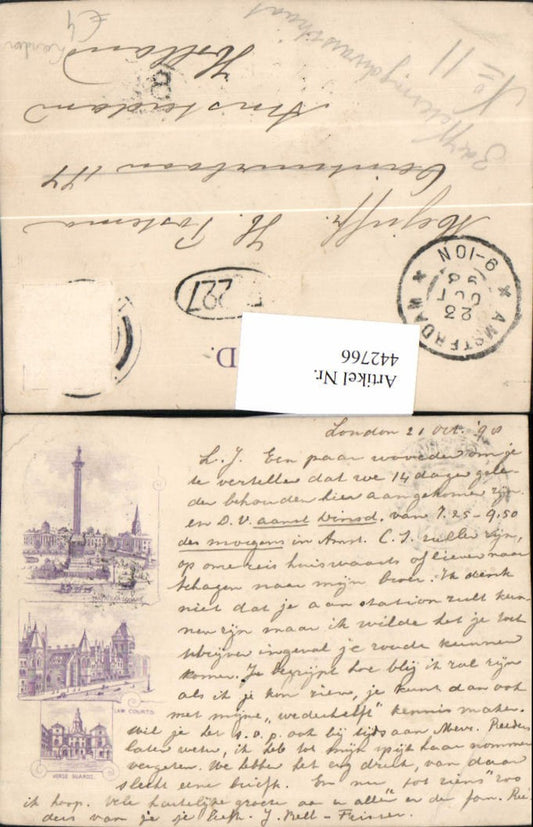 Mejuffr. H. Postema
Ceintuurbaan 144
Amsterdam
Holland
No 11
London
£4
AMSTERDAM
23
OCT
98
9-10N
227
D.
Artikel Nr.
442766
London 21 Oct. '98
L. J. Een paar woorden om je
te vertellen dat we 14 dagen gele-
den behouden hier aangekomen zijn
en D.V. aanst Dinsd. van 7.25-9.50
des morgens in Amst. C. S. zullen zijn,
op onze reis huiswaarts of liever naar
Schagen naar mijn broer. Ik denk
niet dat je aan station zult kun-
nen zijn maar ik wilde het je toch
schrijven ingeval je zoude kunnen
komen. Je begrijpt hoe blij ik zal zijn
als ik je kon zien, je kunt dan ook
met mijne „wederhelft" kennis maken.
Wil je het s.o.p. ook bij tijds aan Mevr. Reeders
laten weten, ik heb tot mijn spijt haar nommer
vergeten. We hebben het erg druk, van daar
slechts eene briefk. En nu "tot ziens" zoo
ik hoop. Vele hartelijke groeten aan u allen en de fam. Ree-
ders van je je liefh. J. Nell-
LAW COURTS.
HORSE GUARDS.